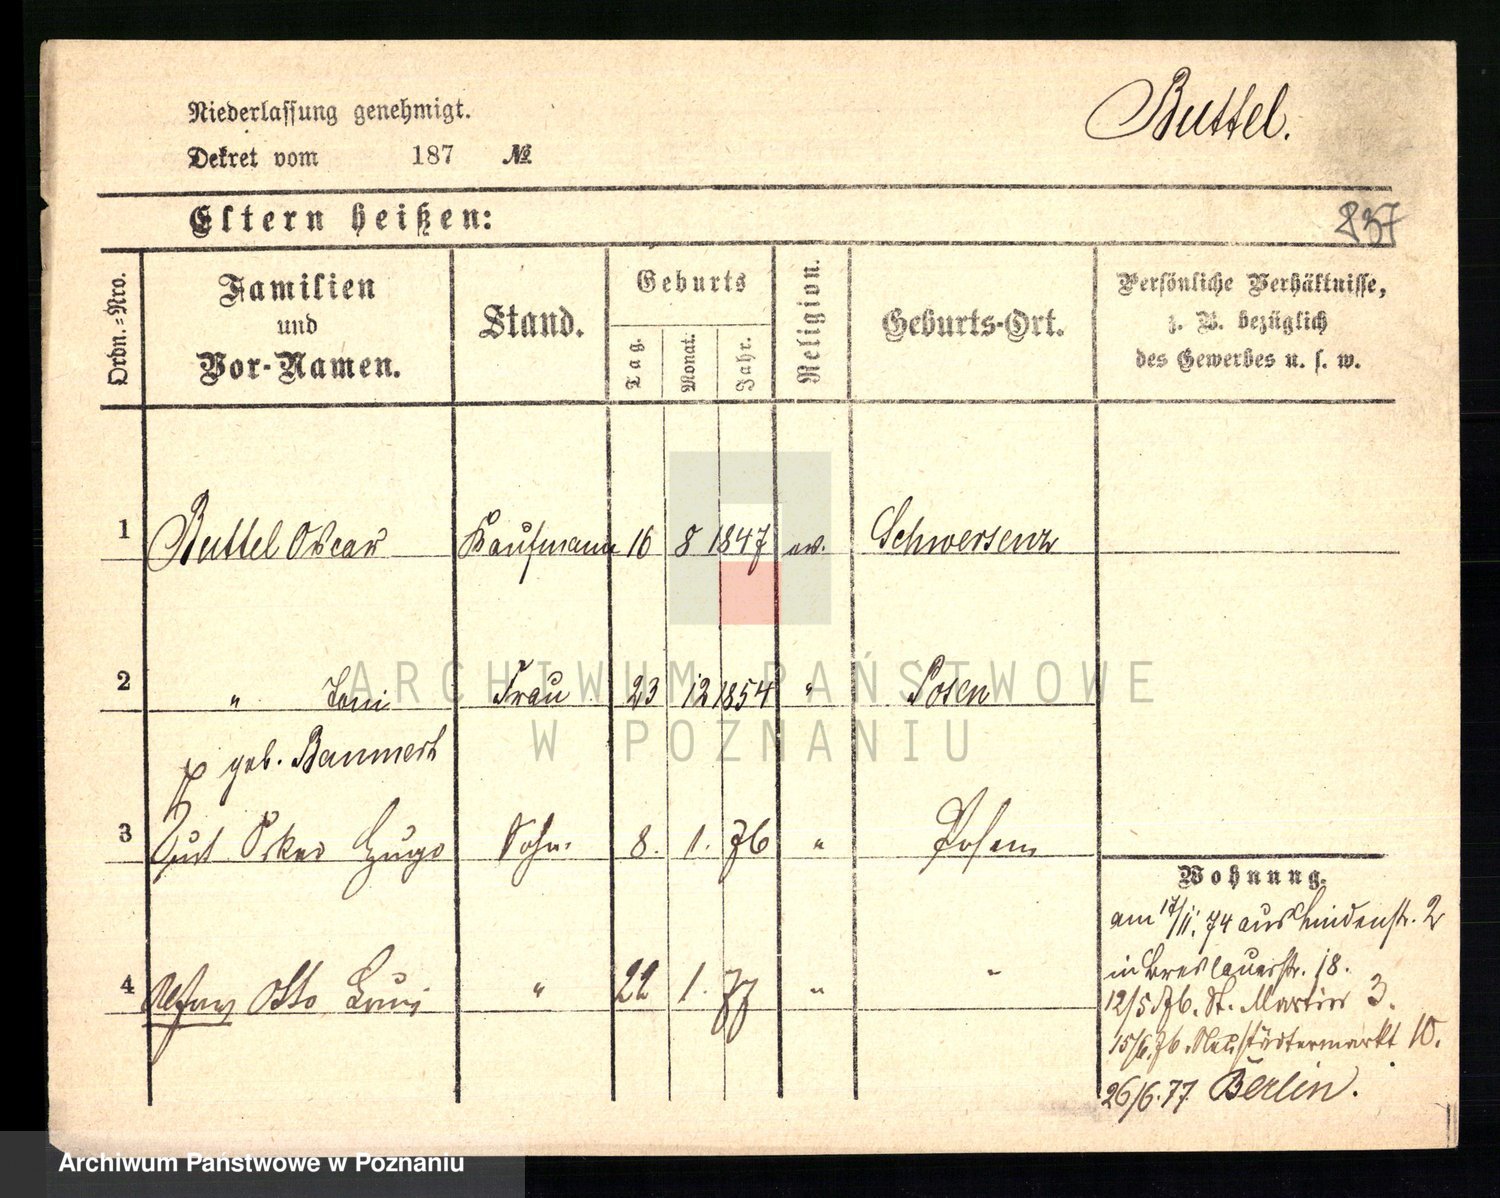 Niederlassung genehmigt.
Buttel.
Dekret vom 187 №
Eltern heißen:
837
Ordn.-Nro.
Familien
und
Vor-Namen.
Stand.
Geburts
Tag.
Monat.
Jahr.
Religion.
Geburts-Ort.
Persönliche Verhältnisse,
z. B. bezüglich
des Gewerbes u. s. w.
1 Buttel Oscar Kaufmann 16 8 1847 ev. Schwersenz
2 " Toni Frau 23 12 1854 " Posen
geb. Bammert
3 Curt Oskar Hugo Sohn. 8. 1. 76 " Posen
Wohnung.
am 17/11. 74 aus Lindenstr. 2
in Breslauerstr. 18.
4 Otto " 22 1. 77 " "
12/5 76. St. Martin 3.
15/6. 76. Neustädtermarkt 10.
26/6. 77 Berlin.
ARCHIWUM PAŃSTWOWE
W POZNANIU
Archiwum Państwowe w Poznaniu